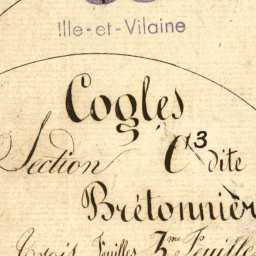 Ille-et-Vilaine
Cogles
Section C3 dite
Brétonnièr
Trois Feuilles 3me Feuille